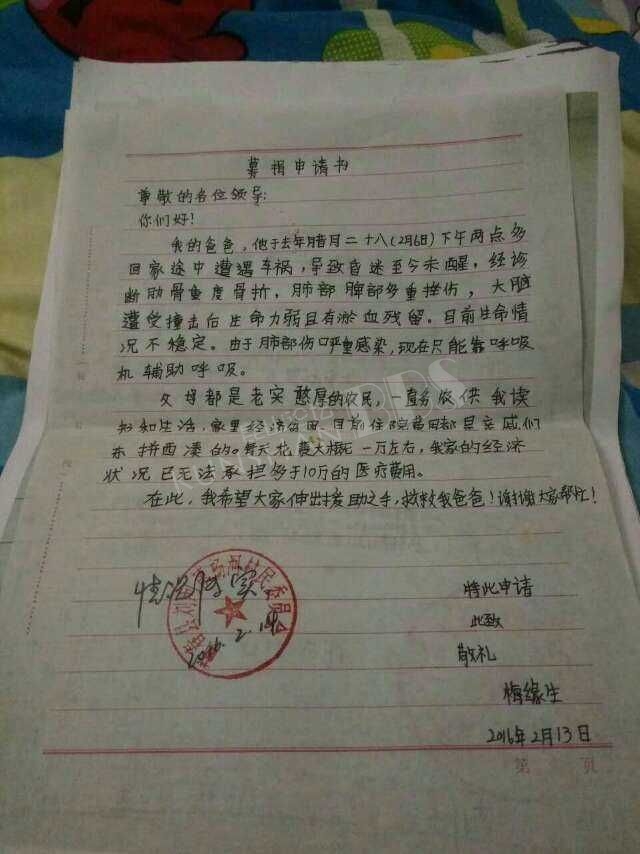 募捐申请书
尊敬的各位领导:
你们好!
我的爸爸,他于去年腊月二十八(2月6日)下午两点多
回家途中遭遇车祸,导致昏迷至今未醒,经诊
断肋骨重度骨折,肺部脾部多重挫伤,大脑
遭受撞击后生命力弱且有淤血残留。目前生命情
况不稳定。由于肺部伤口严重感染,现在只能靠呼吸
机辅助呼吸。
父母都是老实憨厚的农民,一直务农供我读
书和生活,家里经济负困,目前住院费用都是亲戚们
东拼西凑的。每天花费大概一万左右,我家的经济
状况已无法承担多于10万的医疗费用。
在此,我希望大家伸出援助之手,救救我爸爸!谢谢大家帮忙!
情况属实
2016.2.14
村民委员会
特此申请
此致
敬礼
梅缘生
2016年2月13日
第 页